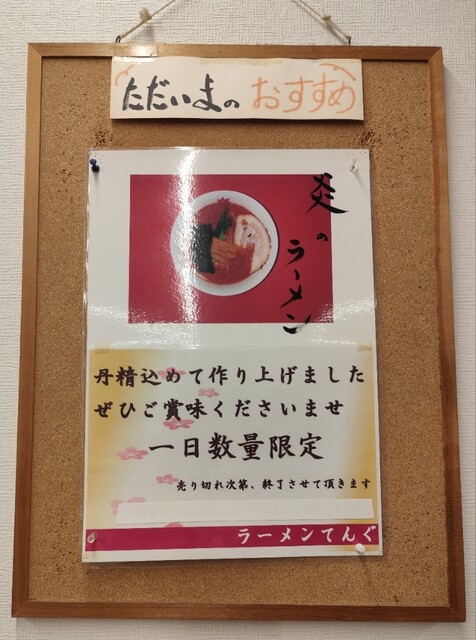 ただいまの おすすめ
炎のラーメン
丹精込めて作り上げました
ぜひご賞味くださいませ
一日数量限定
売り切れ次第、終了させて頂きます
ラーメンてんぐ